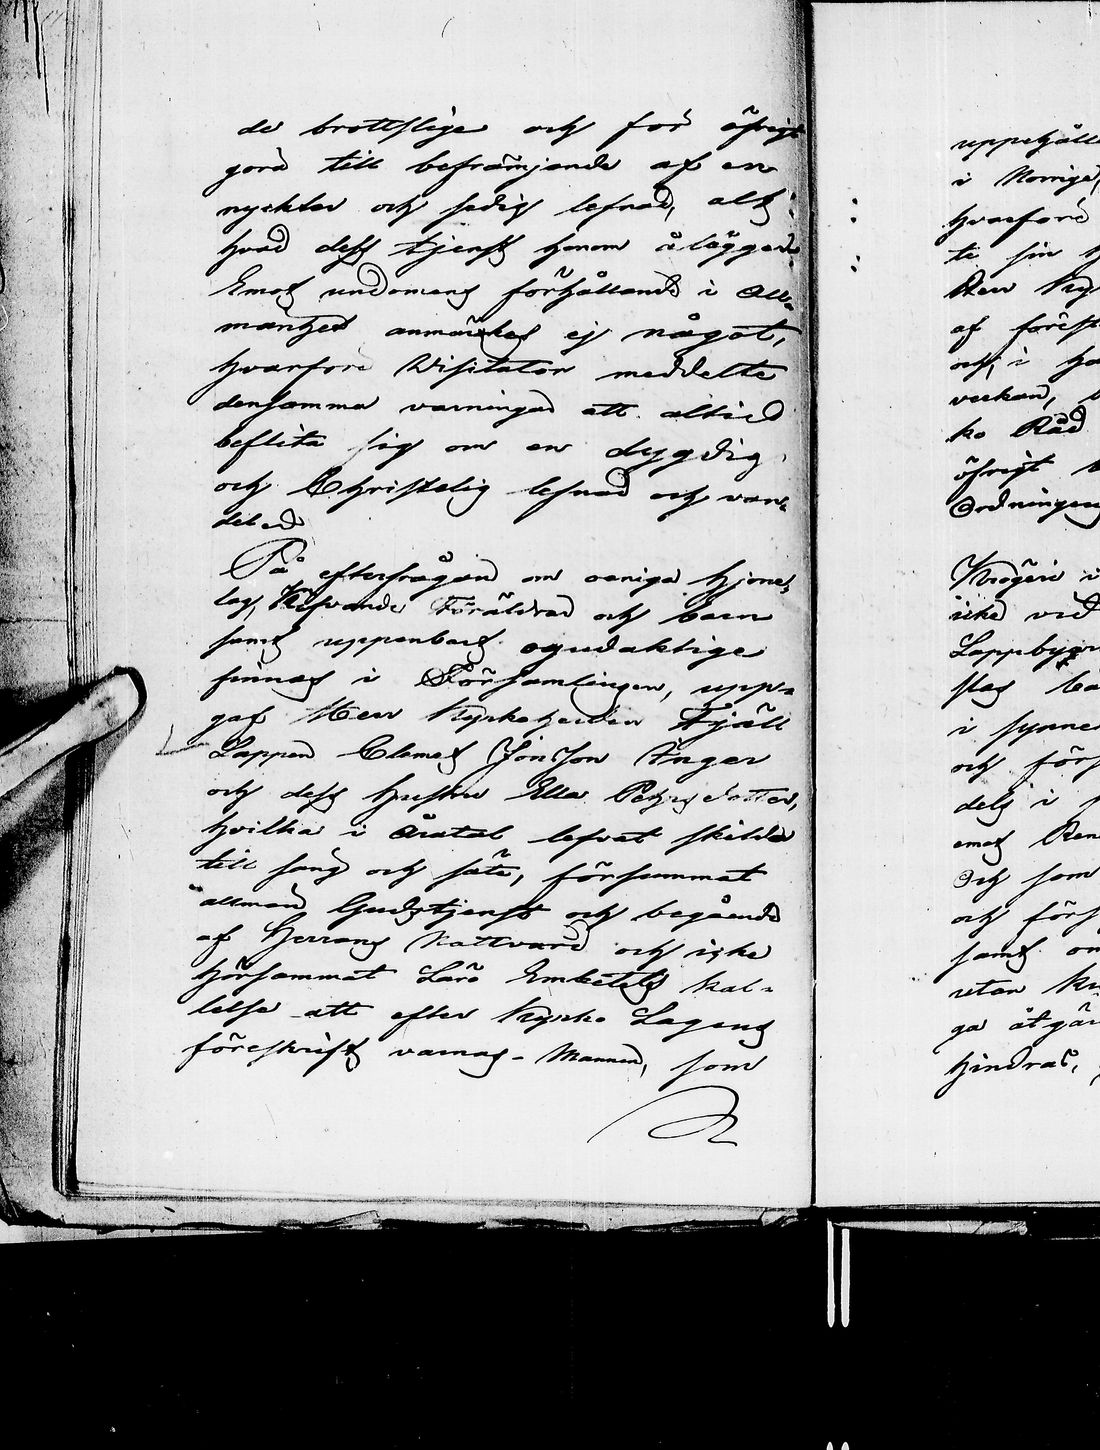 de brottslige och för öfrigt
göra till befrämjande af en
nykter och sedig lefnad, allt
hvad dess tjenst honom ålägger.
Emot ungdomens förhållande i All-
mänhet anmärktes ej något,
hvarföre Visitator meddelte
densamma varningar att alltid
beflita sig om en dygdig
och Christelig lefnad och van-
del.
På efterfrågan om oeniga hjone-
lag, Föräldrar och barn
samt uppenbart ogudaktige
finnas i Församlingen, upp-
gaf Herr Kyrkoherden Fjäll
Lappen Clemet Jonsson Anger
och dess hustru Ella Petersdotter,
hvilka i åratal lefvat skilde
till säng och säte, försummat
allmän Gudstjenst och begående
af Herrans Nattvard och icke
hörsammat Läro Embetets kal-
lelse att efter Kyrko Lagens
föreskrift varnas. Mannen, som
uppehålle
i Norrige,
hvarföre
te sin h
Herr Kyr
af förest
och, i ha
verkan,
ko Råd
öfrigt
Ordningen
Krögeri i
icke vid
Lappby
slag
i synne
och förs
dels i
emot Ren
Och som
och förs
samt om
utan Ky
ga åtgär
hindras,